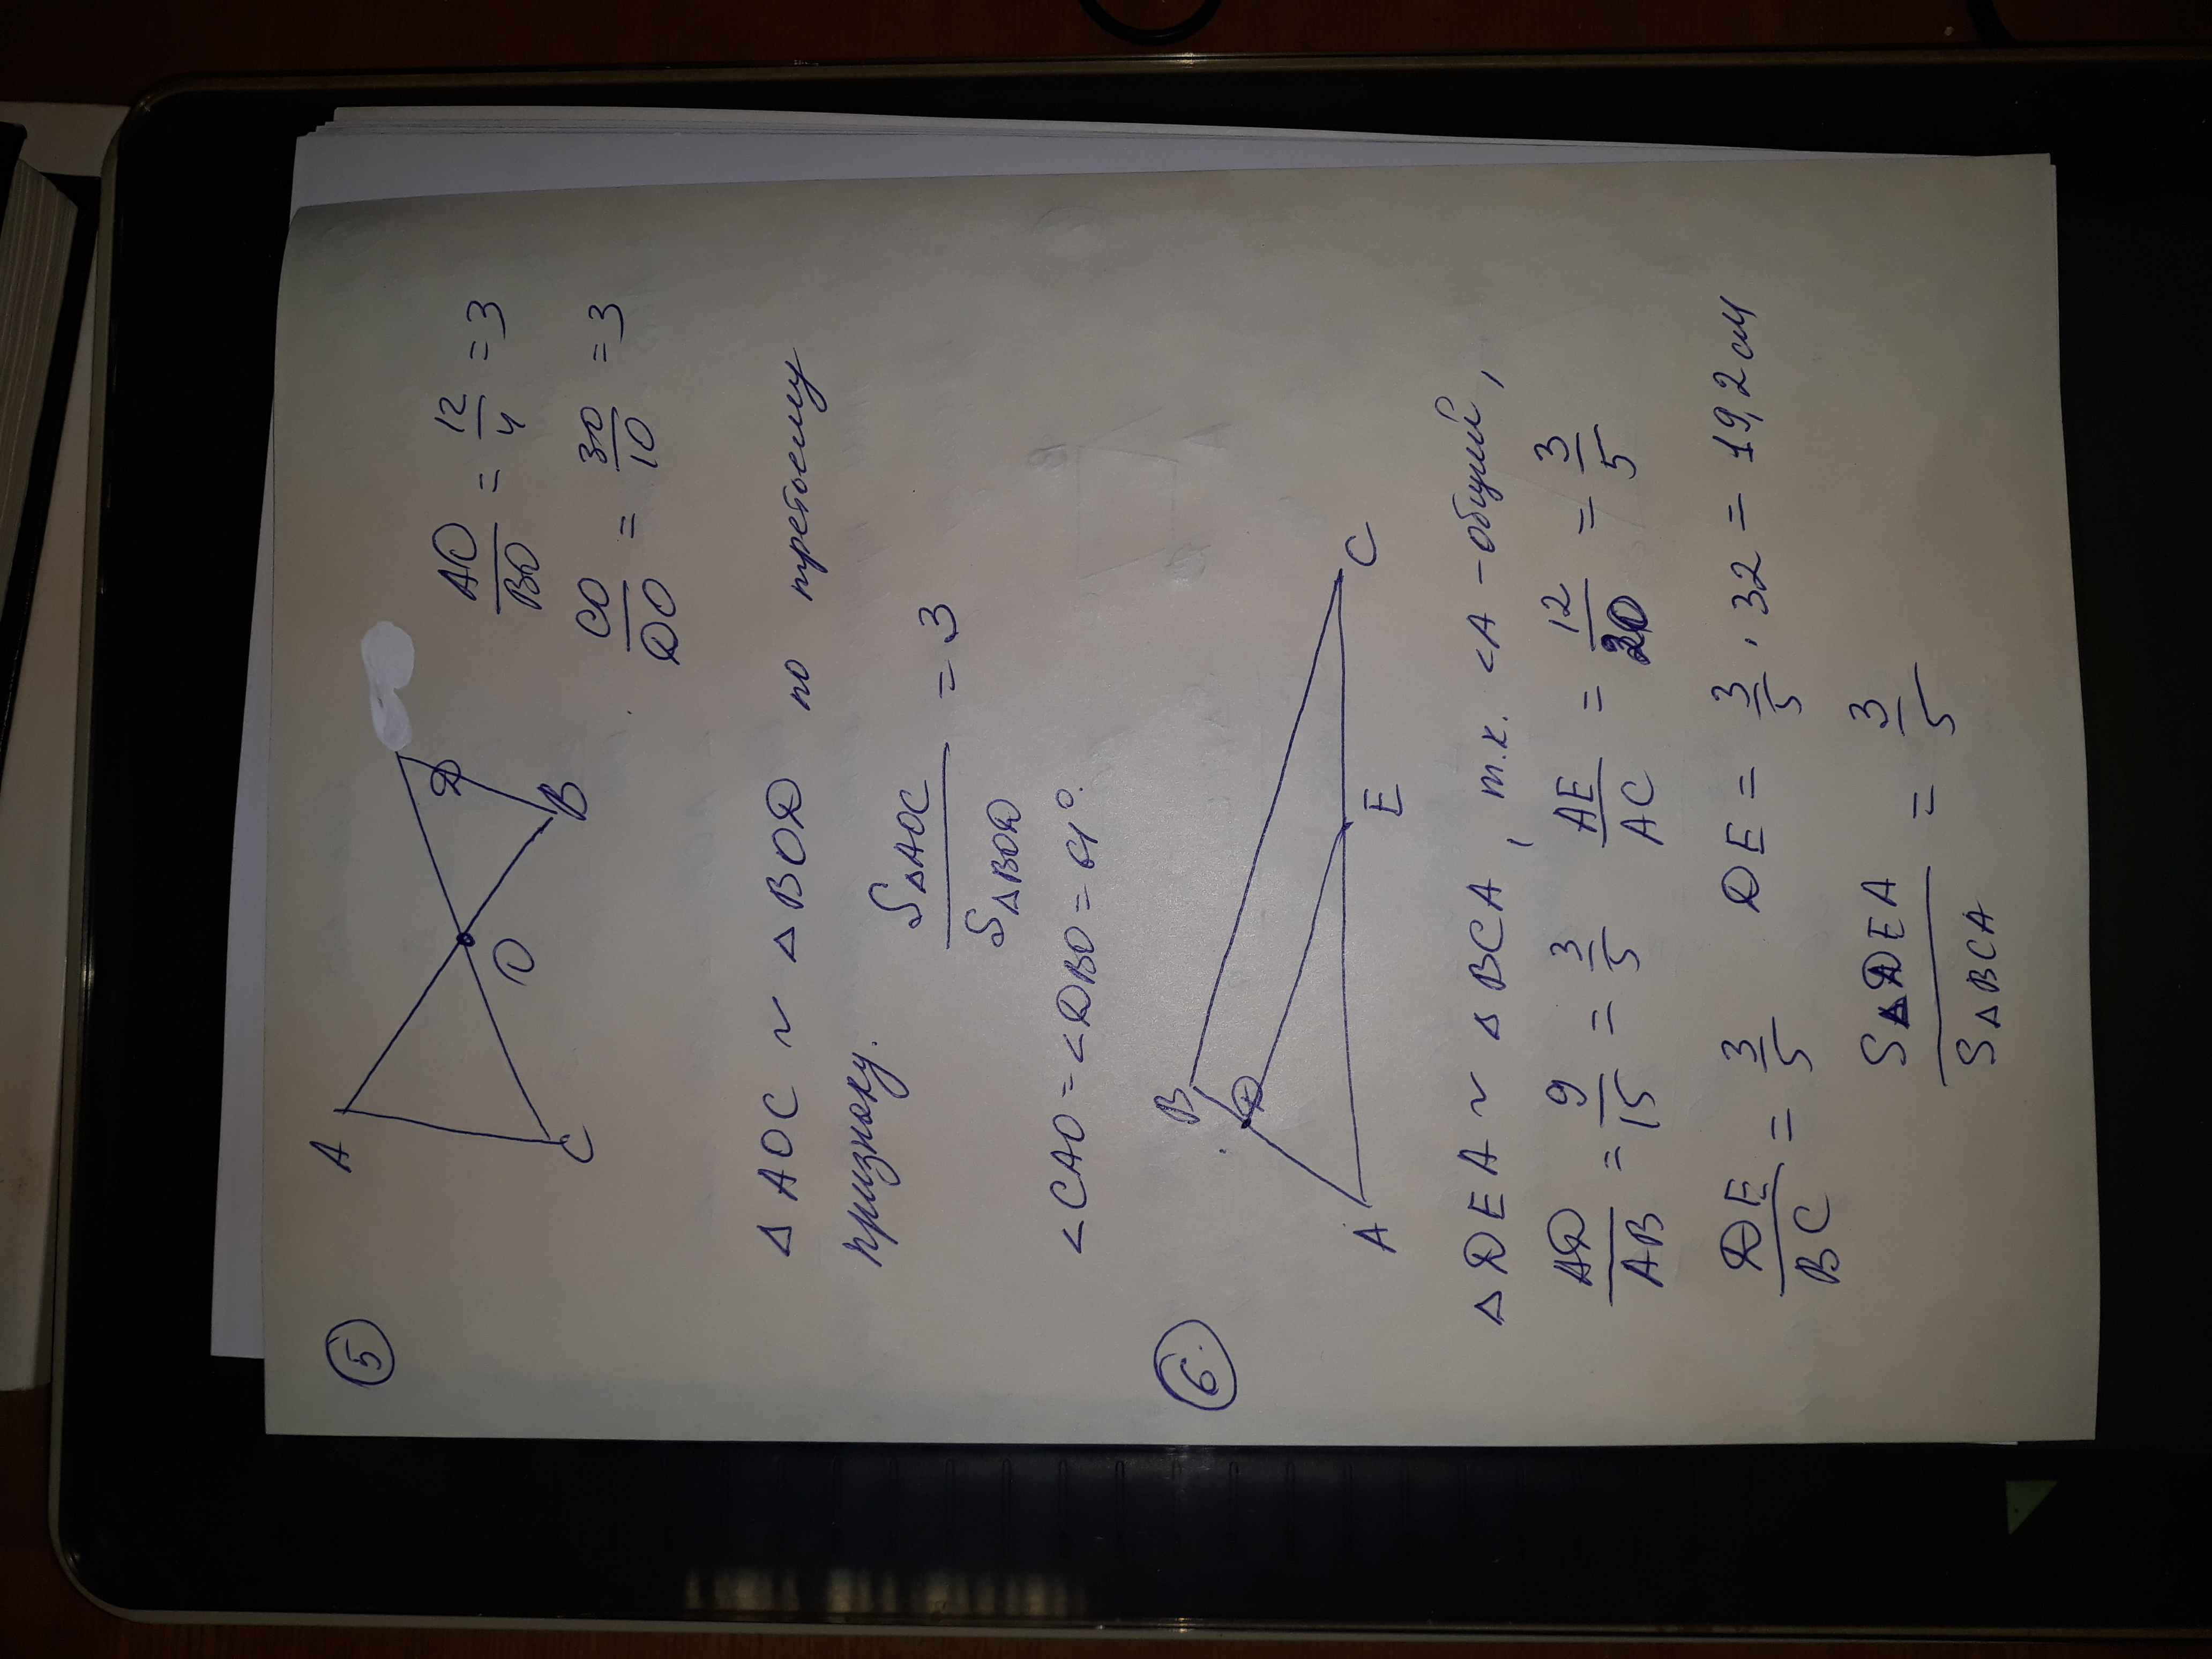 5
A
D
O
B
C
AO/BO = 12/4 = 3
CO/DO = 30/10 = 3
△AOC ~ △BOD по третьему
признаку.
S△AOC/S△BOD = 3
<CAO = <DBO =
6.
B
D
A
E
C
△DEA ~ △BCA, т.к. <A - общий,
AD/AB = 9/15 = 3/5, AE/AC = 12/20 = 3/5
DE/BC = 3/5 DE = 3/5 · 32 = 19,2 см
S△DEA/S△BCA = 3/5